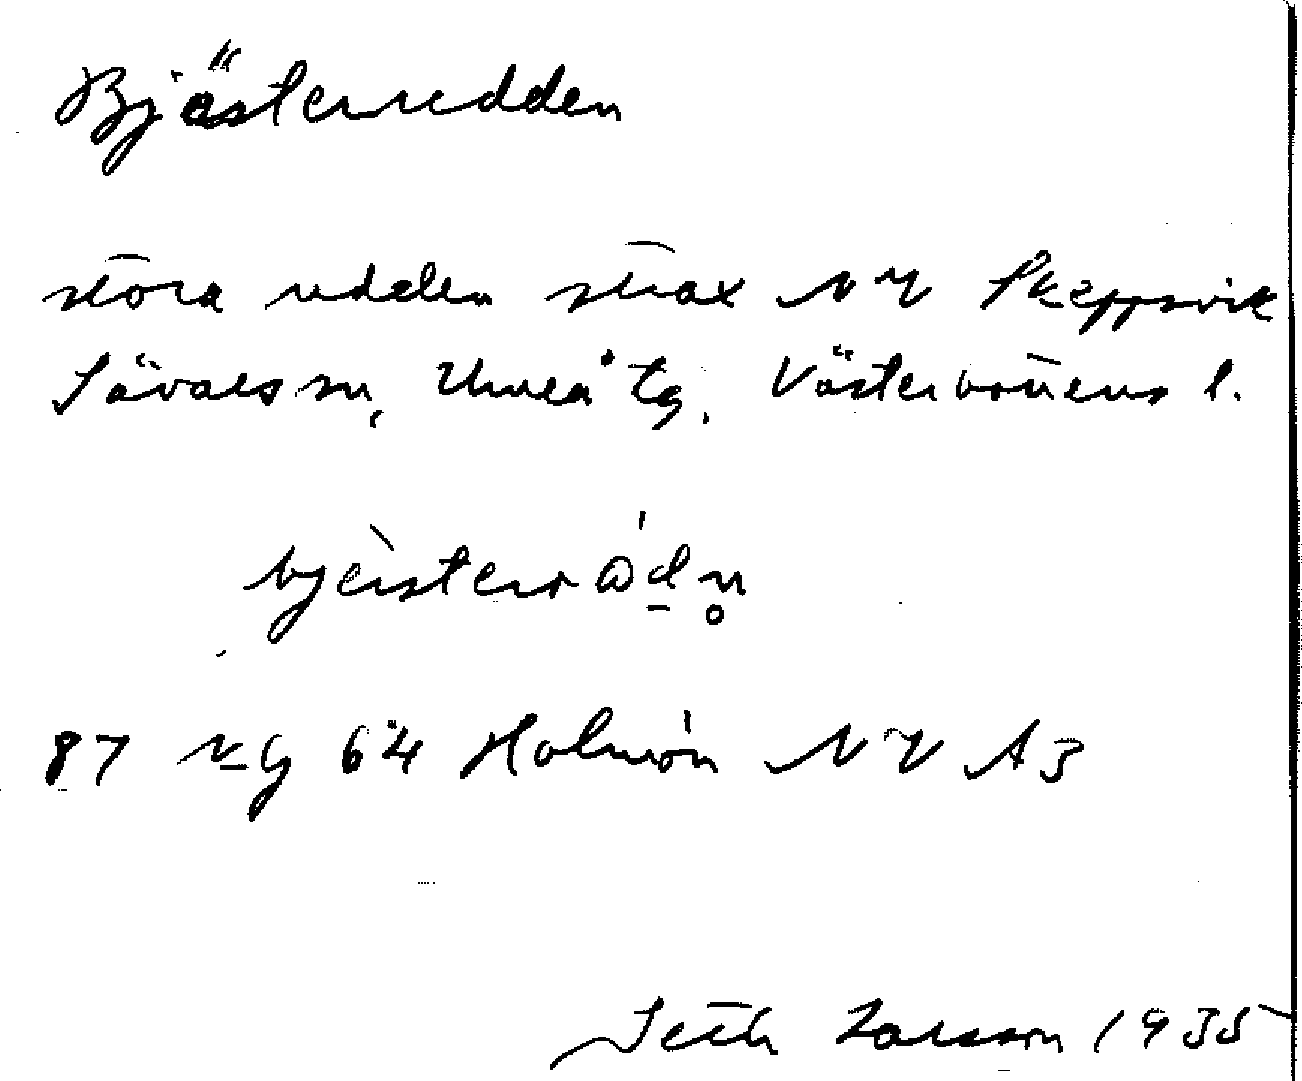 Bjästerudden
stora udden strax NV Skeppsvik
Sävars sn, Umeå tg. Västerbottens l.
87 Holmön NV A3
Seth Larsson 1935